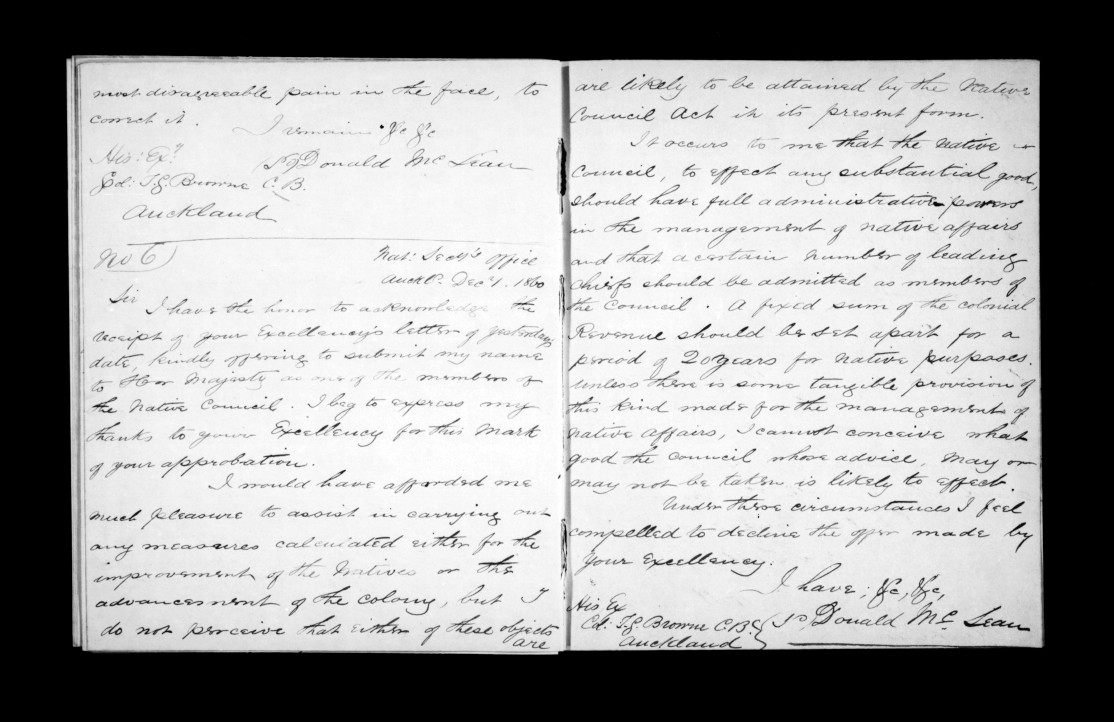 most disagreeable pain in the face, to
correct it.
I remain &c &c
His: Exy
Col: T.G. Browne C.B.
Donald McLean
Auckland
No 6
Nat: Secy's Office
Auckd. Decr 1. 1860
Sir
I have the honor to acknowledge the
receipt of your Excellency's letter of yesterday's
date, kindly offering to submit my name
to Her Majesty as one of the members of
the Native Council. I beg to express my
thanks to your Excellency for this mark
of your approbation.
I would have afforded me
much pleasure to assist in carrying out
any measures calculated either for the
improvement of the Natives or the
advancement of the colony, but I
do not perceive that either of these objects
are
are likely to be attained by the Native
Council Act in its present form.
It occurs to me that the Native
Council, to effect any substantial good,
should have full administrative powers
in the management of native affairs
and that a certain number of leading
chiefs should be admitted as members of
the Council. A fixed sum of the colonial
Revenue should be set apart for a
period of 20 years for Native purposes.
Unless there is some tangible provision of
this kind made for the management of
Native Affairs, I cannot conceive what
good the Council whose advice, may or
may not be taken is likely to effect.
Under these circumstances I feel
compelled to decline the offer made by
Your Excellency.
I have, &c, &c,
His Ex
Col: T.G. Browne C.B.
Donald McLean
Auckland